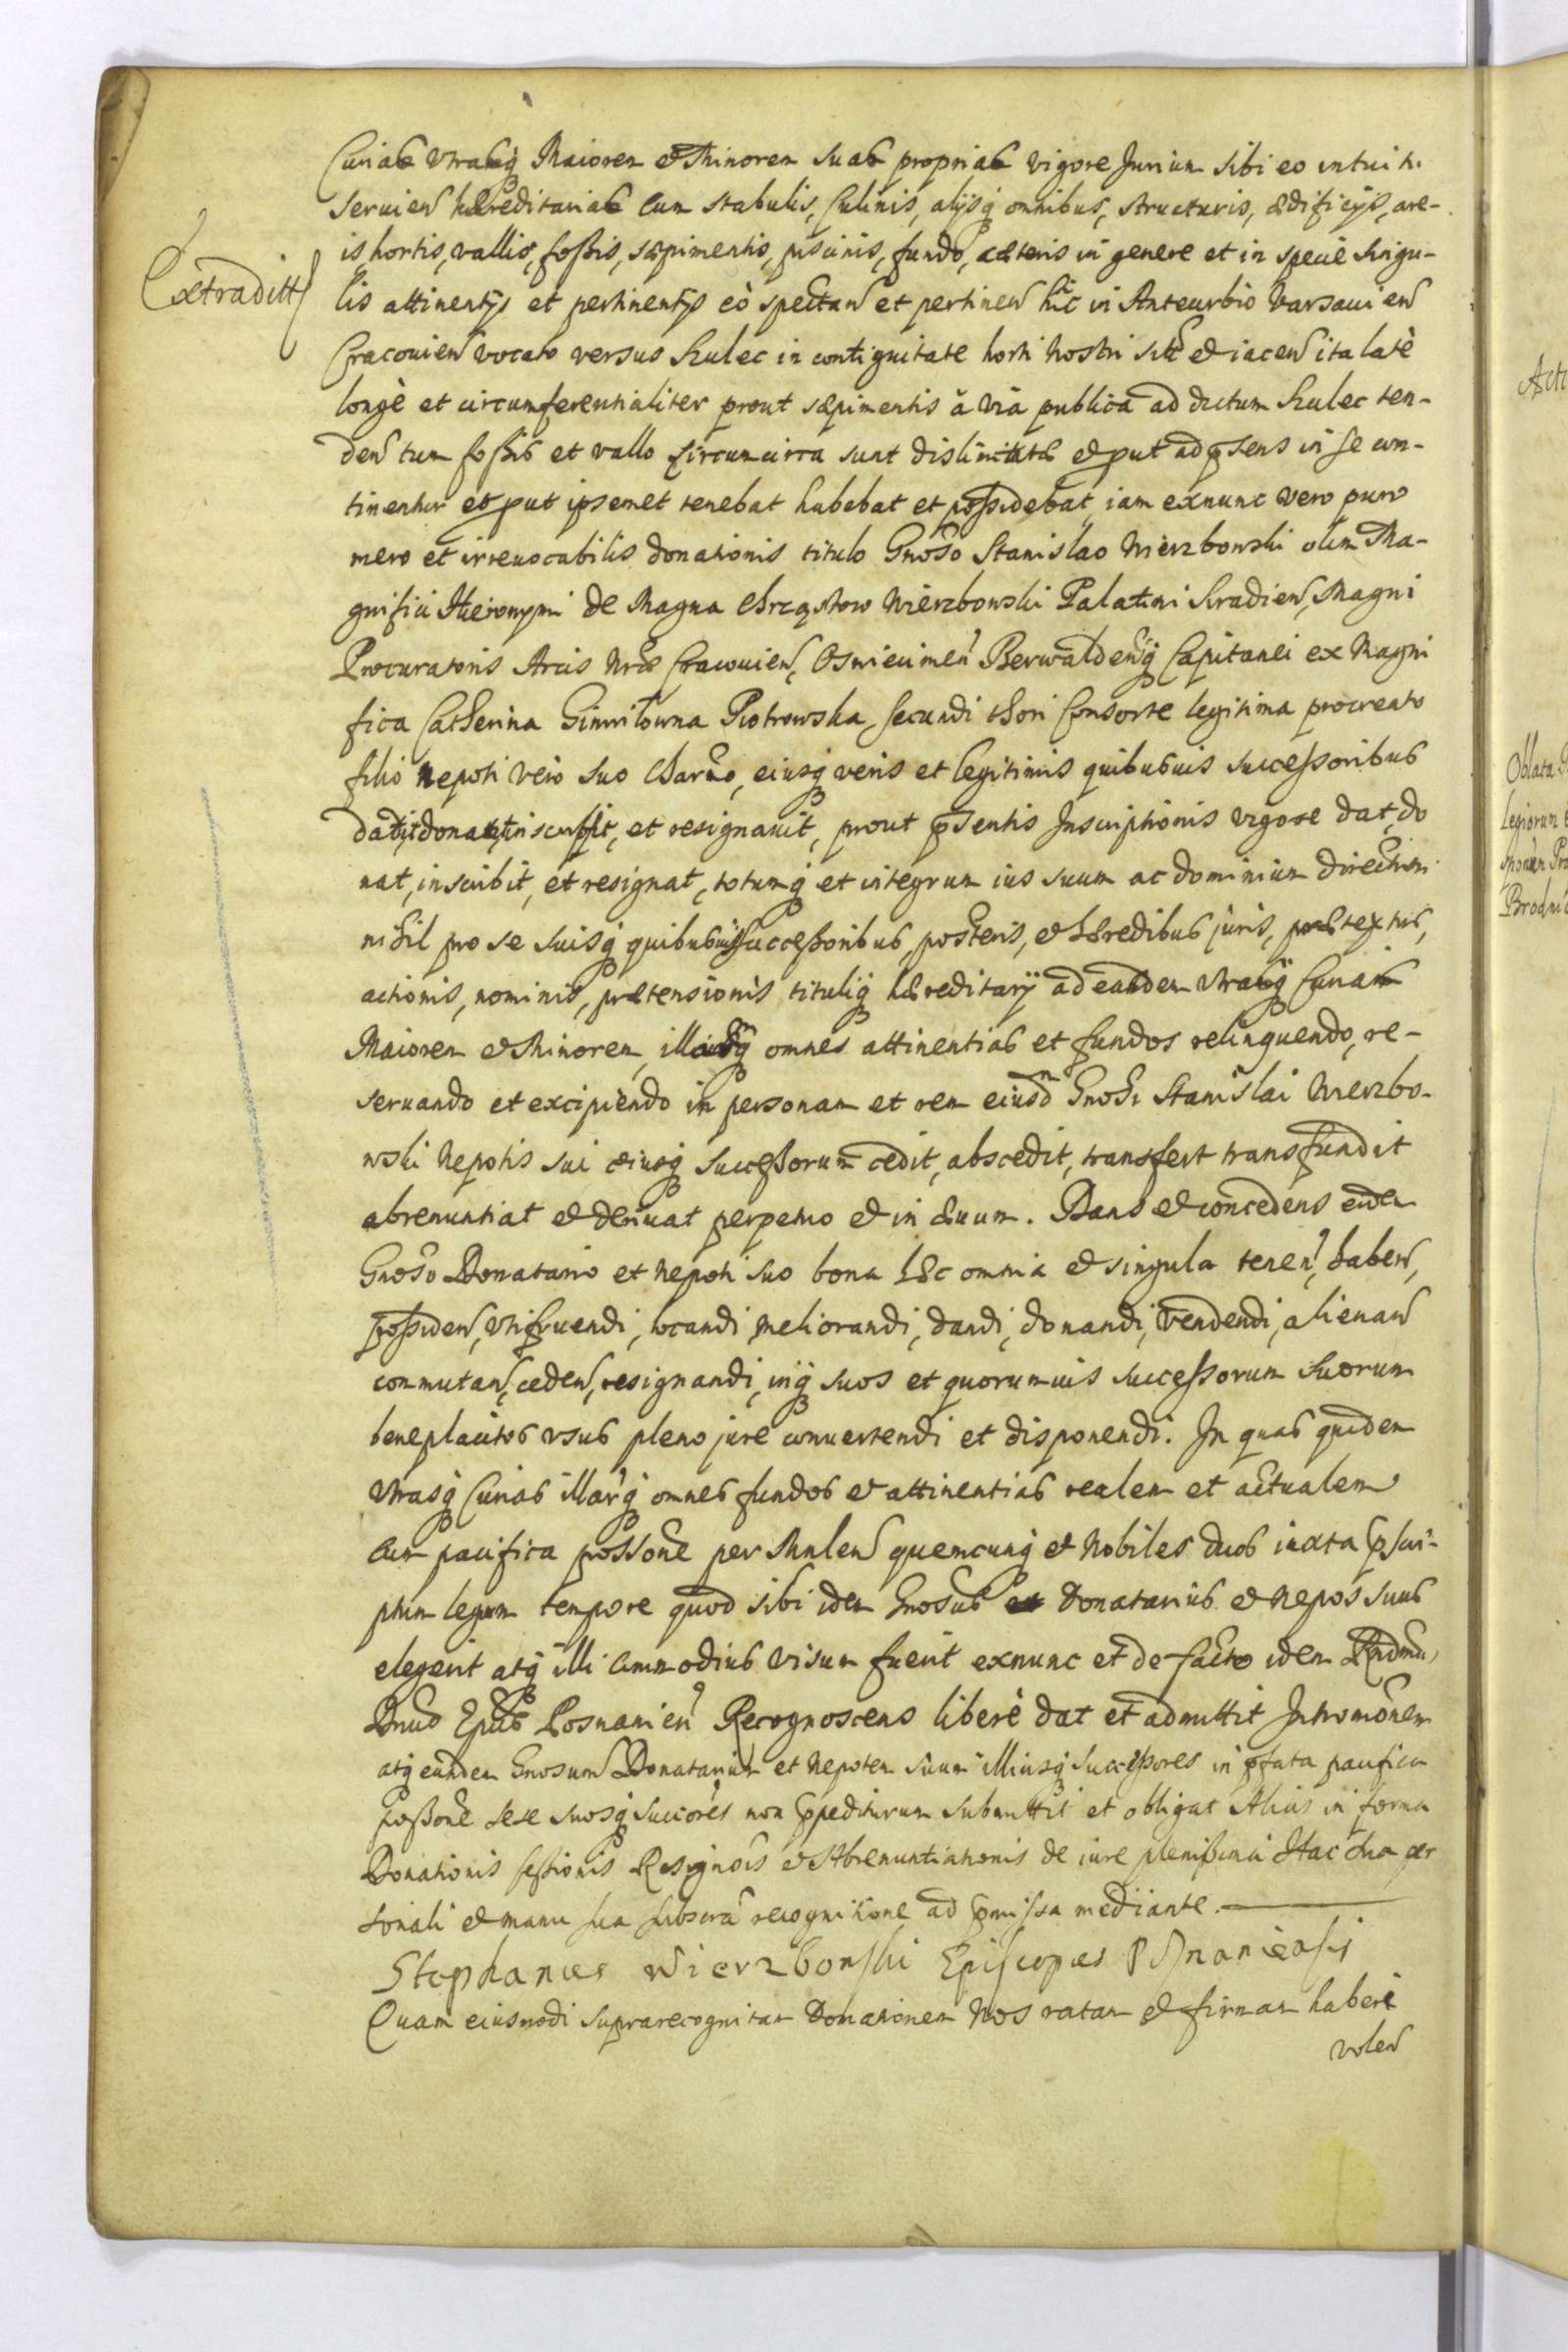 Curias utrasq Maiorem et Minorem suas proprias vigore Jurium sibi eo intuitu
servien hæreditarias cum stabulis, Culinis, alijsq omnibus, structuris, ædificijs, are-
is hortis, vallis, foßis, sæpimentis, piscinis, fundo, cæteris in genere et in specie singu-
Extradittß
lis attinentijs et pertinentijs eò spectan et pertinen hic in Anteurbio Varsavien
Cracovien vocato versus Szulec in contiguitate horti nostri sitt et iacen ita latè
longè et circumferentialiter prout sæpimentis à viâ publicâ ad dictum Szulec ten-
den tum foßis et vallo circumcirca sunt distinctæ et put ad psens in se con-
tinentur et put ipsemet tenebat habebat et poßidebat, iam exnunc vero puro
mero et irrevocabilis donationis titulo Gnoso Stanislao Wierzbowski olim Ma-
gnifici Hieronymi de Magna Chrząstow Wierzbowski Palatini Siradien, Magni
Procuratoris Arcis Nræ Cracovien, Osviecimen Berwaldenq Capitanei ex Magni
fica Catherina Gimiłtowna Piotrowska secundi thori Consorte legitima procreato
filio nepoti vero suo charmo, eiusq veris et legitimis quibusvis successoribus
dedit, donavit, inscripsit, et resignavit, prout psentis Inscriptionis vigore dat, do
nat, inscribit, et resignat, totumq et integrum ius suum ac dominium directum
nihil pro se suisq quibusvis succeßoribus, posteris, et hæredibus juris, prætextus,
actionis, nominis, prætensionis tituliq hæreditarij ad easdem utrasq Curias
Maiorem et Minorem, illarumq omnes attinentias et fundos relinquendo, re-
servando et excipiendo in personam et rem eiusdm Gnosi Stanislai Wierzbo-
wski Nepotis sui eiusq succeßorum cedit, abscedit, transfert transfundit
abrenuntiat et derivat perpetuo et in ævum. Dans et concedens eidem
Gnoso Donatario et nepoti suo bona hæc omnia et singula tenen, haben,
poßiden, utifruendi, locandi meliorandi, dandi, donandi, vendendi, alienan
commutan, ceden, resignandi, inq suos et quorumvis successorum suorum
beneplacitos usus pleno jure convertendi et disponendi. In quas quidem
utrasq Curias illarq omnes fundos et attinentias realem et actualem
cum pacifica possone per Mnlen quemcunq et Nobiles duos iuxta pscri-
ptum legum tempore quod sibi idem Gnosus Donatarius et Nepos suus
elegerit atq illi commodius visum fuerit exnunc et de facto idem Rndmus
Dnus Epus Posnanien Recognoscens liberè dat et admittit Intromonem
atq eundem Gnosum Donatarium et nepotem suum illiusq succeßores in pfata pacifica
poßone sese suosq succores non ppediturum submittit et obligat Alias in forma
Donationis Ceßionis Resignõis et Abrenuntiationis de iure plenißima Hac sua per
sonali et manu sua subscra recognitione ad pmissa mediante.
Stephanus Wierzbowski Episcopus Posnaniensis
Quam eiusmodi suprarecognitam Donationem Nos ratam et firmam haberi
volen
Acte
Oblata
Legiorum
Brodni